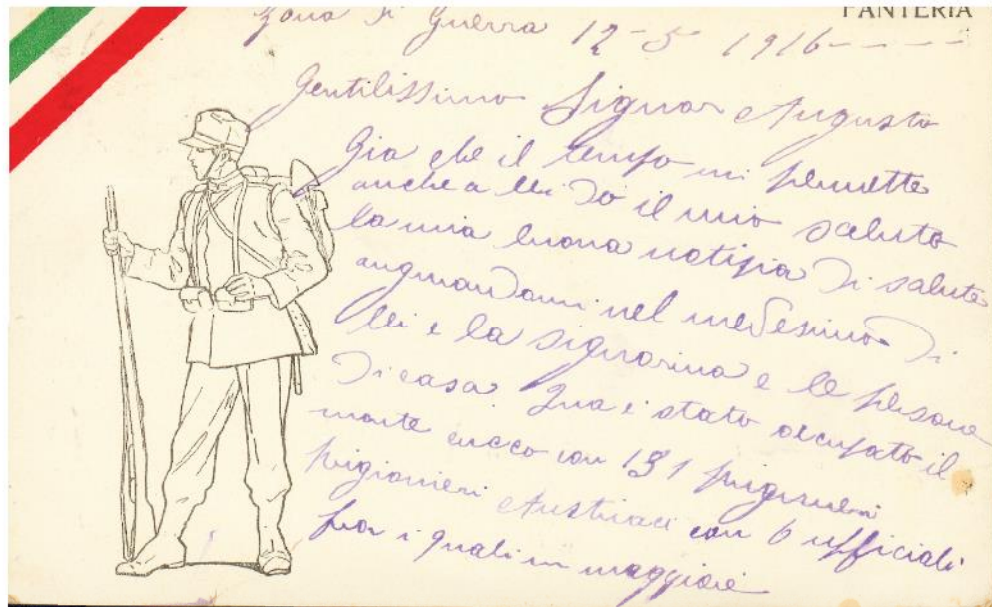 FANTERIA
Zona di Guerra 12-5-1916----
Gentilissimo Signor Augusto
Gia che il tempo mi permette
anche a lei do il mio saluto
la mia buona notizia di salute
augurandomi nel medesimo di
lei e la signorina e le persone
di casa. Qua è stato occupato il
monte cucco con 131 prigionieri
prigionieri Austriaci con 6 ufficiali
fra i quali un maggiore